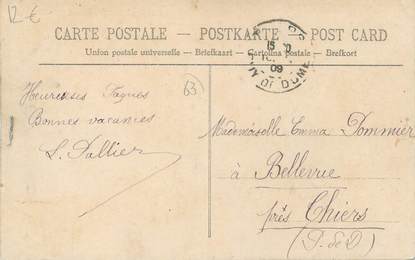 12 €
CARTE POSTALE — POSTKARTE — POST CARD
Union postale universelle — Briefkaart — Cartolina postale — Brefkort
15
09
PUY DE DOME
63
Heureuses Pâques
Bonnes vacances
S. Pallier
Mademoiselle Emma Dommier
à Bellevue
près Thiers
(P-de-D)